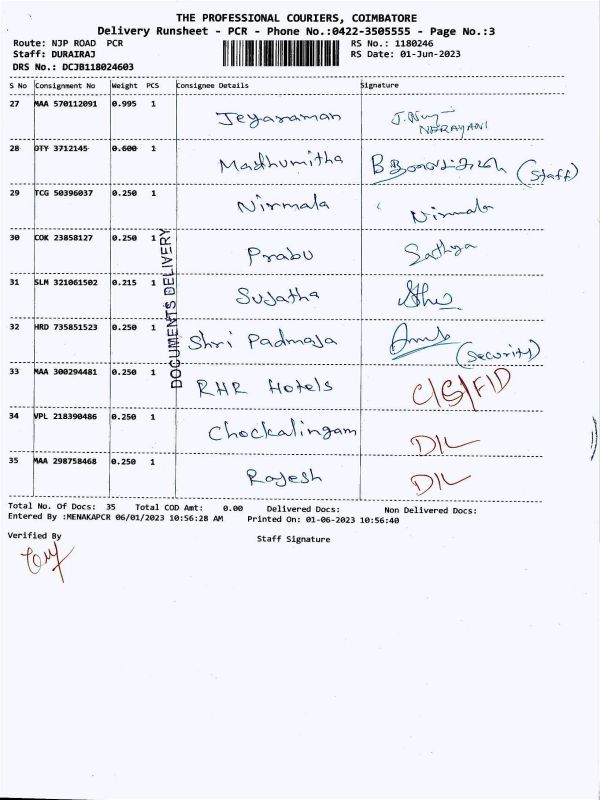 THE PROFESSIONAL COURIERS, COIMBATORE
Delivery Runsheet - PCR - Phone No.:0422-3505555 - Page No.:3
Route: NJP ROAD PCR RS No.: 1180246
Staff: DURAIRAJ RS Date: 01-Jun-2023
DRS No.: DCJB118024603
S No Consignment No Weight PCS Consignee Details Signature
27 MAA 570112091 0.995 1 Jeyaraman J. NARAYANI
28 DTY 3712145 0.600 1 Madhumitha (Staff)
29 TCG 50396037 0.250 1 Nirmala Nirmala
30 COK 23858127 0.250 1 Prabu Sathya
31 SLM 321061502 0.215 1 Sujatha
32 HRD 735851523 0.250 1 Shri Padmaja (Security)
33 MAA 300294481 0.250 1 RHR Hotels
34 VPL 218390486 0.250 1 Chockalingam D/L
35 MAA 298758468 0.250 1 Rajesh D/L
DOCUMENTS DELIVERY
Total No. Of Docs: 35 Total COD Amt: 0.00 Delivered Docs: Non Delivered Docs:
Entered By :MENAKAPCR 06/01/2023 10:56:28 AM Printed On: 01-06-2023 10:56:40
Verified By Staff Signature